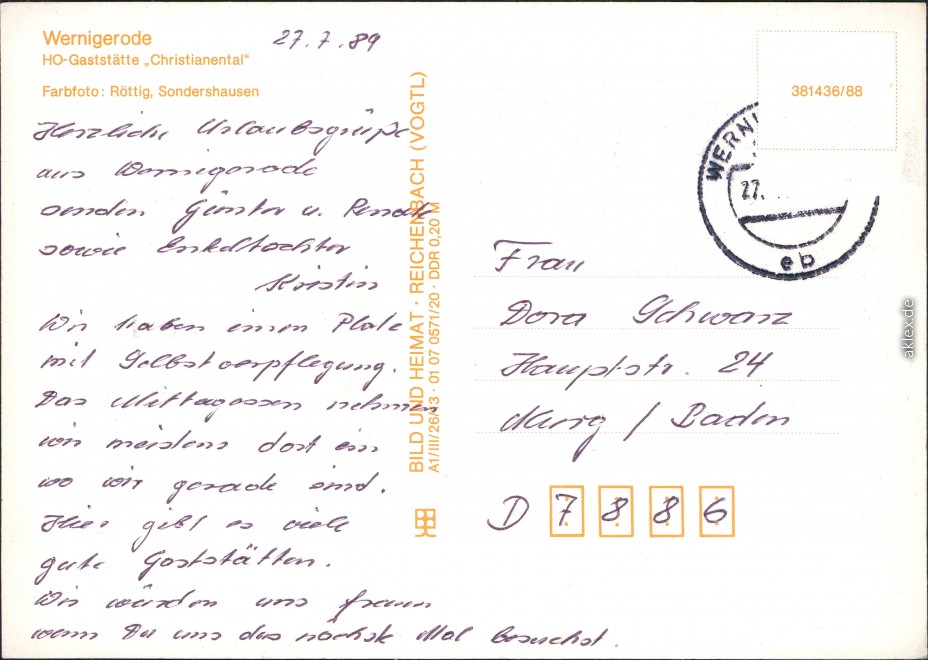 Wernigerode
HO-Gaststätte „Christianental“
Farbfoto: Röttig, Sondershausen
27.7.89
Herzliche Urlaubsgrüße
aus Wernigerode
senden Günter u. Renate
sowie Enkeltochter
Kristin
Wir haben einen Platz
mit Selbstverpflegung.
Das Mittagessen nehmen
wir meistens dort ein
wo wir gerade sind.
Hier gibt es viele
gute Gaststätten.
Wir würden uns freuen
wenn Du uns das nächste Mal besuchst.
BILD UND HEIMAT · REICHENBACH (VOGTL)
A1/III/26/13 · 01 07 0571/20 · DDR 0,20 M
381436/88
WERNI
27.
eb
Frau
Dora Schwarz
Hauptstr. 24
Murg / Baden
D 7886
aklex.de